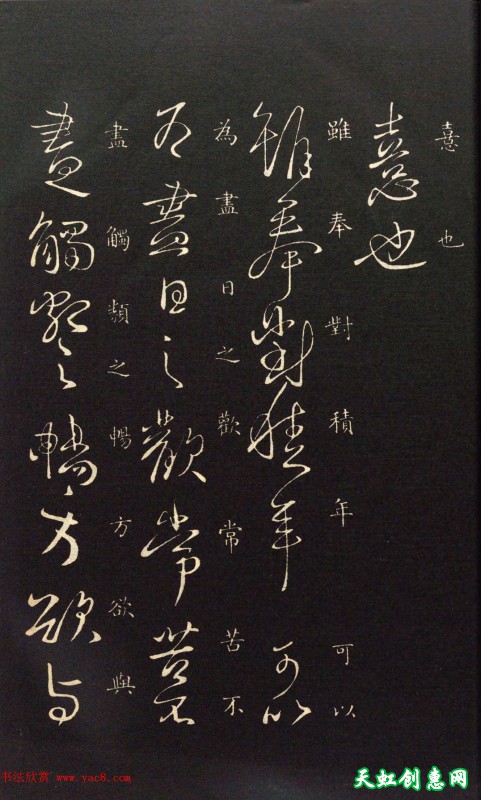 憙也
憙也
雖奉對積年可以
雖奉對積年可以
為盡日之歡常苦不
為盡日之歡常苦不
盡觸類之暢方欲與
盡觸類之暢方欲與
书法欣赏 www.yac8.com
天虹创意网